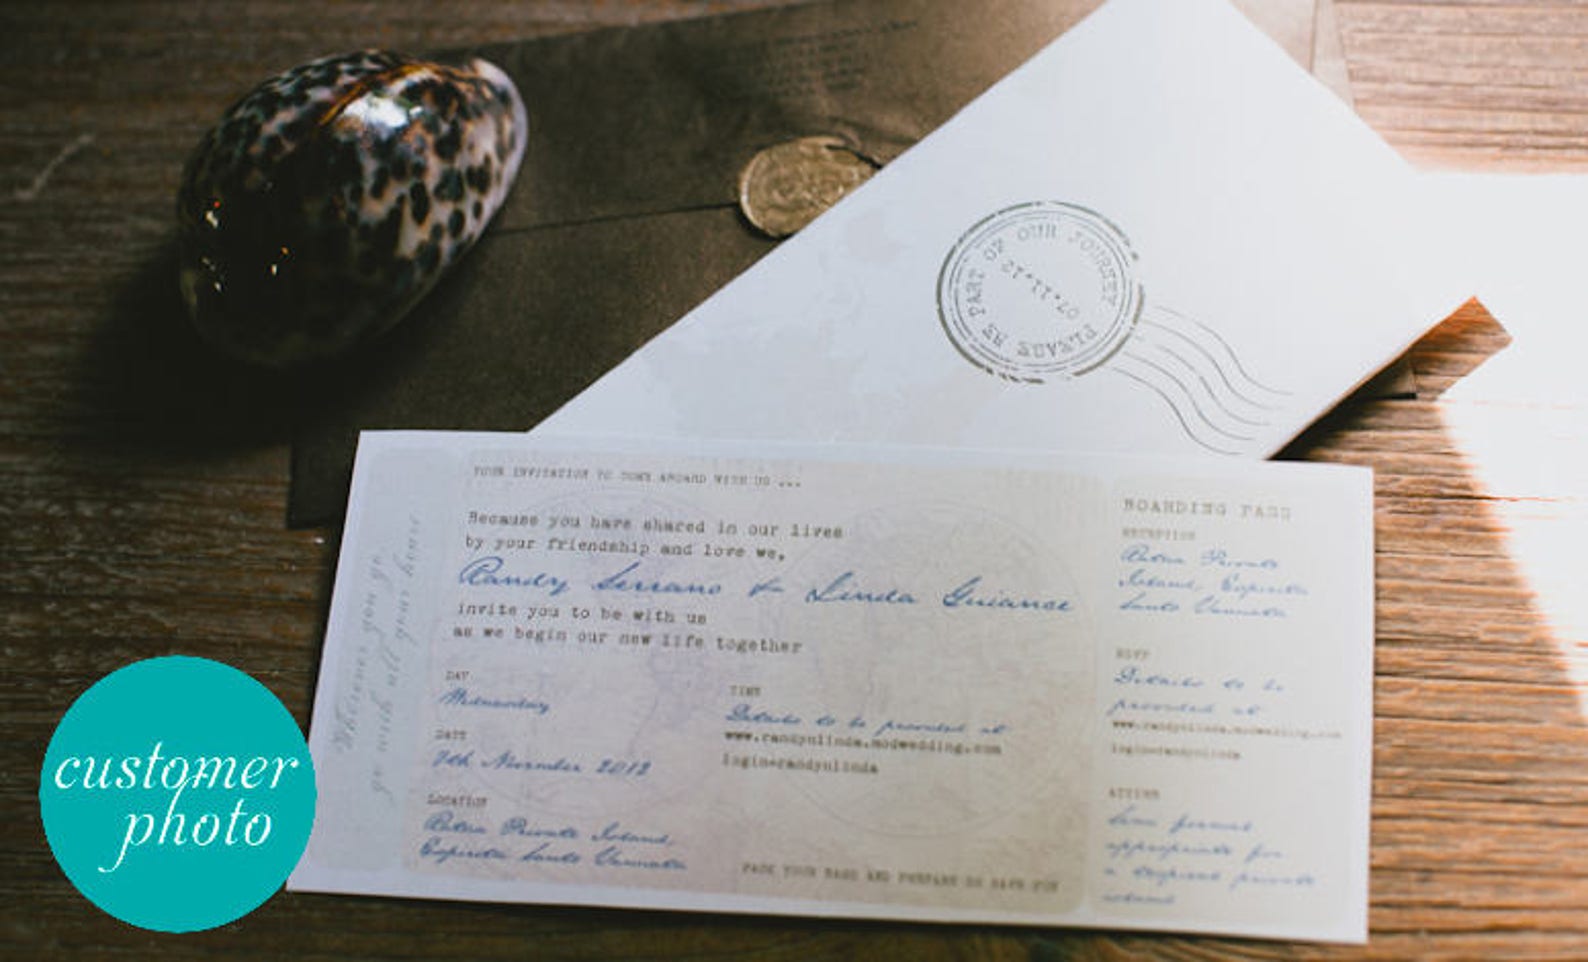 PLEASE BE PART OF OUR JOURNEY
07.11.12
YOUR INVITATION TO COME ABOARD WITH US ...
Because you have shared in our lives
by your friendship and love we,
Randy Serrano & Linda Guiance
invite you to be with us
as we begin our new life together
DAY
Wednesday
DATE
7th November 2012
LOCATION
Ratua Private Island,
Espiritu Santo Vanuatu
TIME
Details to be provided at
www.randynlinda.modwedding.com
login=randynlinda
PACK YOUR BAGS AND PREPARE
Wherever you go
go with all your heart
BOARDING PASS
RECEPTION
Ratua Private
Island, Espiritu
Santo Vanuatu
RSVP
Details to be
provided at
www.randynlinda.modwedding.com
login=randynlinda
ATTIRE
Semi formal
appropriate for
a tropical private
island
customer
photo